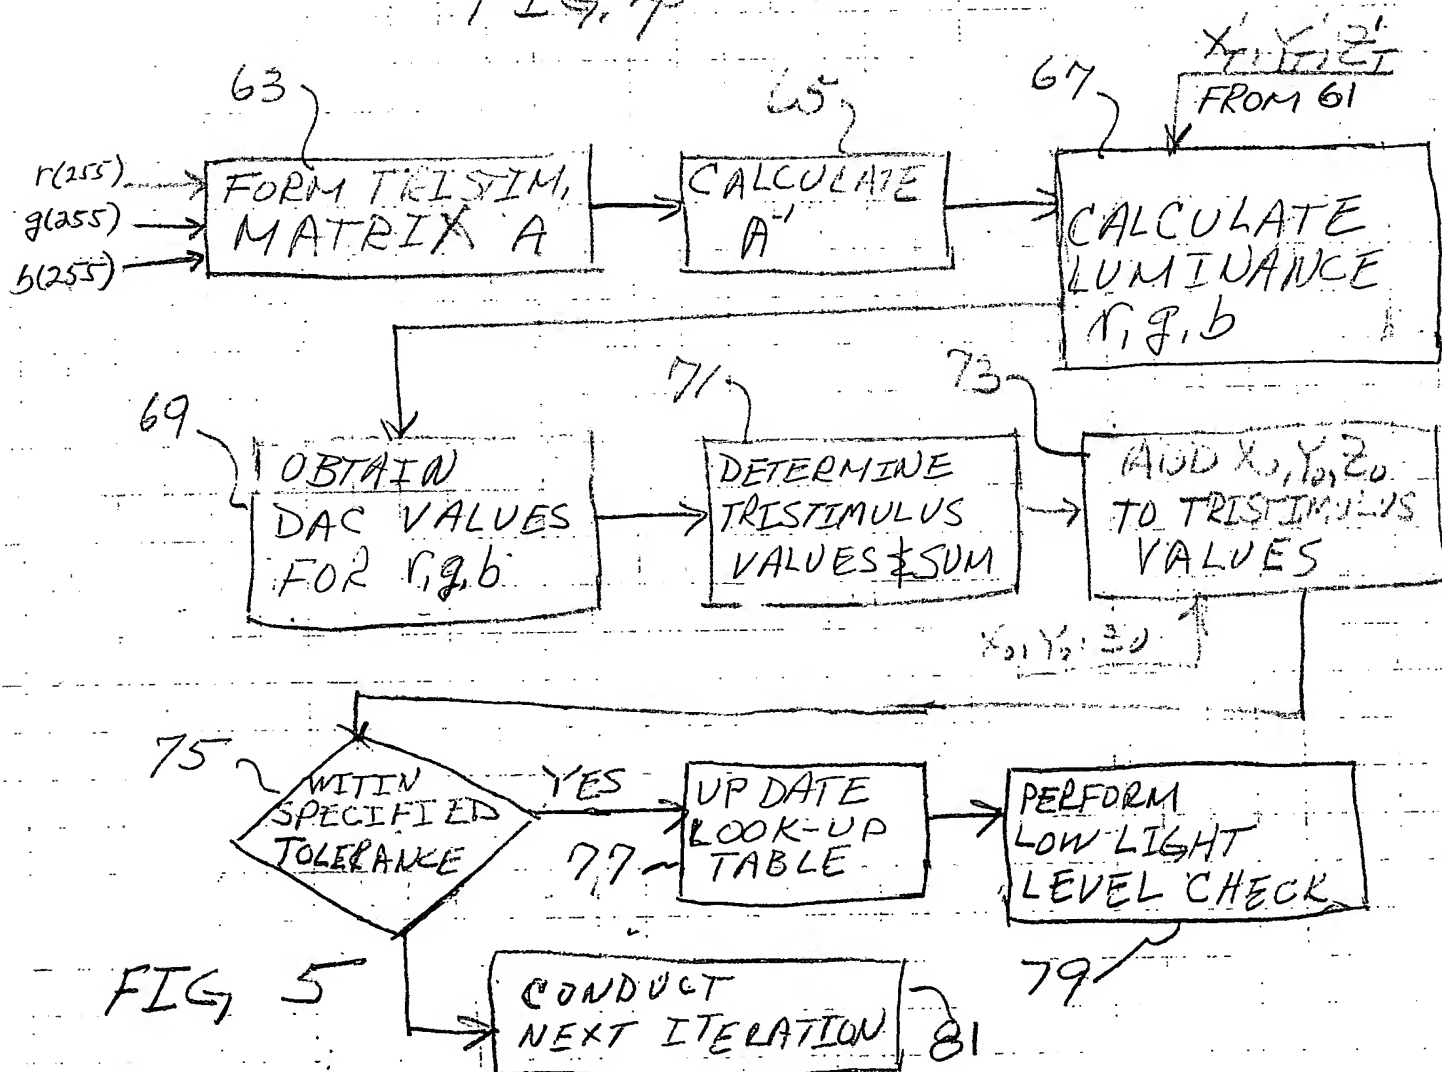 63
65
67
X'I, Y'I, Z'I
FROM 61
r(255)
g(255)
b(255)
FORM TRISTIM.
MATRIX A
CALCULATE
A⁻¹
CALCULATE
LUMINANCE
r, g, b
69
71
73
OBTAIN
DAC VALUES
FOR r,g,b
DETERMINE
TRISTIMULUS
VALUES & SUM
ADD X0, Y0, Z0
TO TRISTIMULUS
VALUES
X0, Y0, Z0
75
WITIN
SPECIFIED
TOLERANCE
YES
77
UPDATE
LOOK-UP
TABLE
PERFORM
LOW LIGHT
LEVEL CHECK
79
FIG, 5
CONDUCT
NEXT ITERATION
81